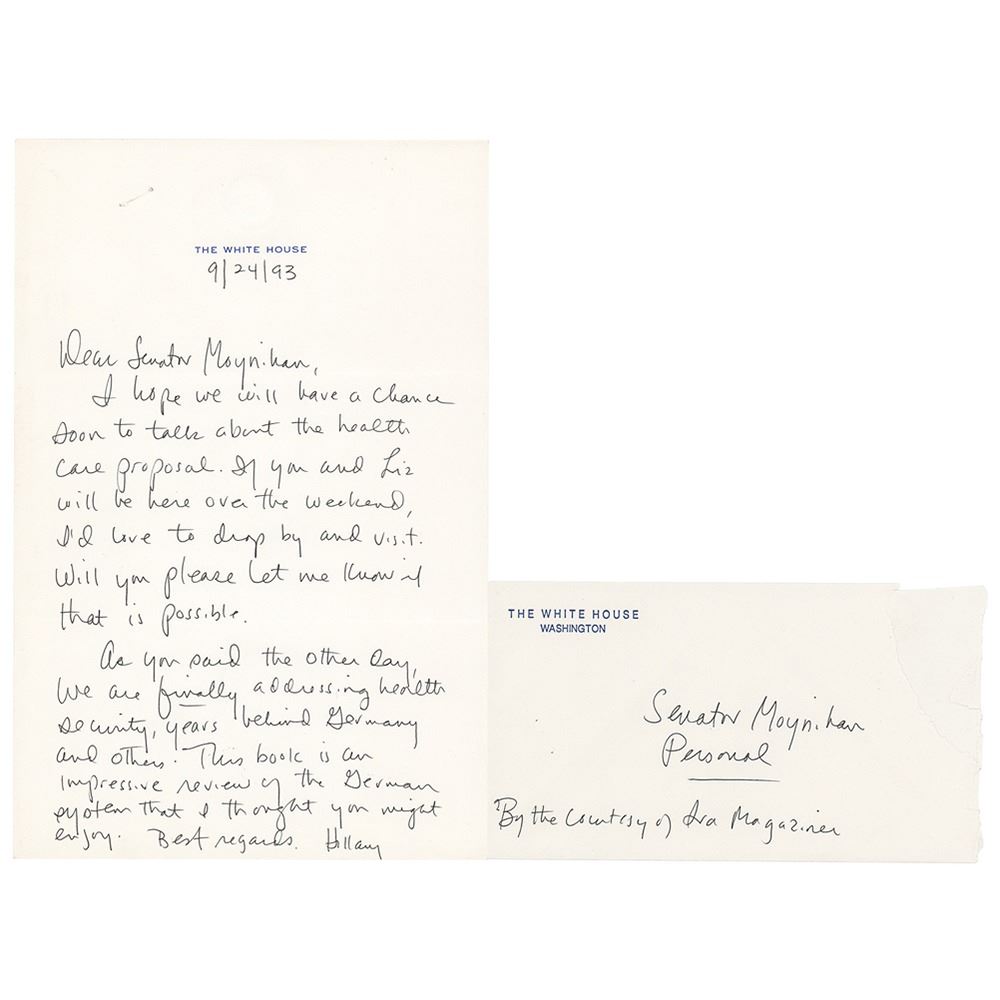 THE WHITE HOUSE
9/24/93
Dear Senator Moynihan,
I hope we will have a chance
soon to talk about the health
care proposal. If you and Liz
will be here over the weekend,
I'd love to drop by and visit.
Will you please let me know if
that is possible.
As you said the other day,
we are finally addressing health
security, years behind Germany
and others. This book is an
impressive review of the German
system that I thought you might
enjoy. Best regards. Hillary
THE WHITE HOUSE
WASHINGTON
Senator Moynihan
Personal
By the courtesy of Ira Magaziner